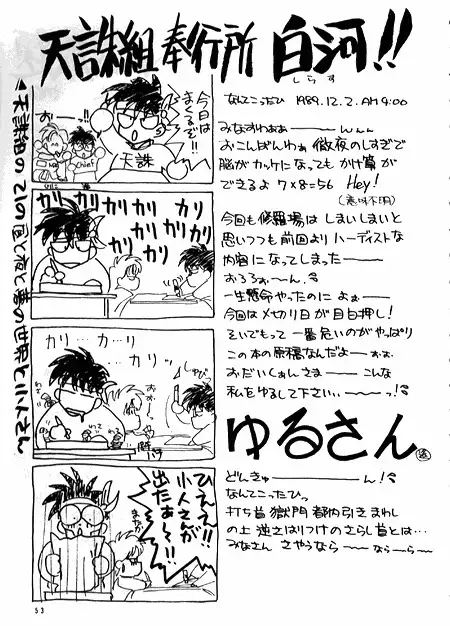 天誅組 奉行所 白河!!
しらす
なんてこったひ 1989.12.2. AM 9:00
みなすわぁぁーーんぃぃ
おこんばんわぁ 徹夜のしすぎで
脳がカッケになっても かけ算が
できるよ 7×8=56 Hey!
(意味不明)
今回も修羅場は しまいしまいと
思いつつも前回より ハーディストな
内容になってしまったーー
おろろぉーん
一生懸命やったのに よぉーー
今回はメセカリ日が目白押し!
そいでもって 一番危いのがやっぱり
この本の原稿なんだよーぉぉ
おだいくぁんさまーー こんな
私をゆるして下さい、ーーっ!
ゆるさん
どんきゅーーーーん!
なんてこったひっ
打ち首 獄門 都内引きまわし
の上 逆さはりつけのさらし首とは…
みなさん さやうならーーならーらー
今日は
まくるぞ!!
おーーっ!!
天誅
Chief
カリ カリ カリ
カリ カリ カリ
カリ カリ
カリ…カリ…
カリ…カリッ
ひええ!!
小人さんが
出たぁ〜〜!!
53